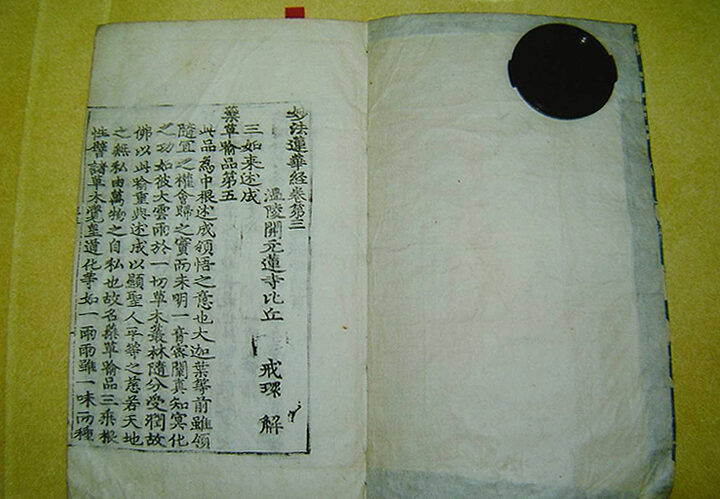 妙法蓮華經卷第三
溫陵開元蓮寺比丘 戒環 解
三如來述成
藥草喩品第五
此品為中根述成領悟之意也大迦葉等前雖領
隨宜之權會歸之實而未明一音密闡真知冥化
之功如彼大雲雨於一切草木叢林隨分受潤故
佛以此喩重與述成以顯聖人平等之慈若天地
之無私由萬物之自私也故名藥草喩品三乘根
性譬諸草木覺皇道化等如一雨雨雖一味而種